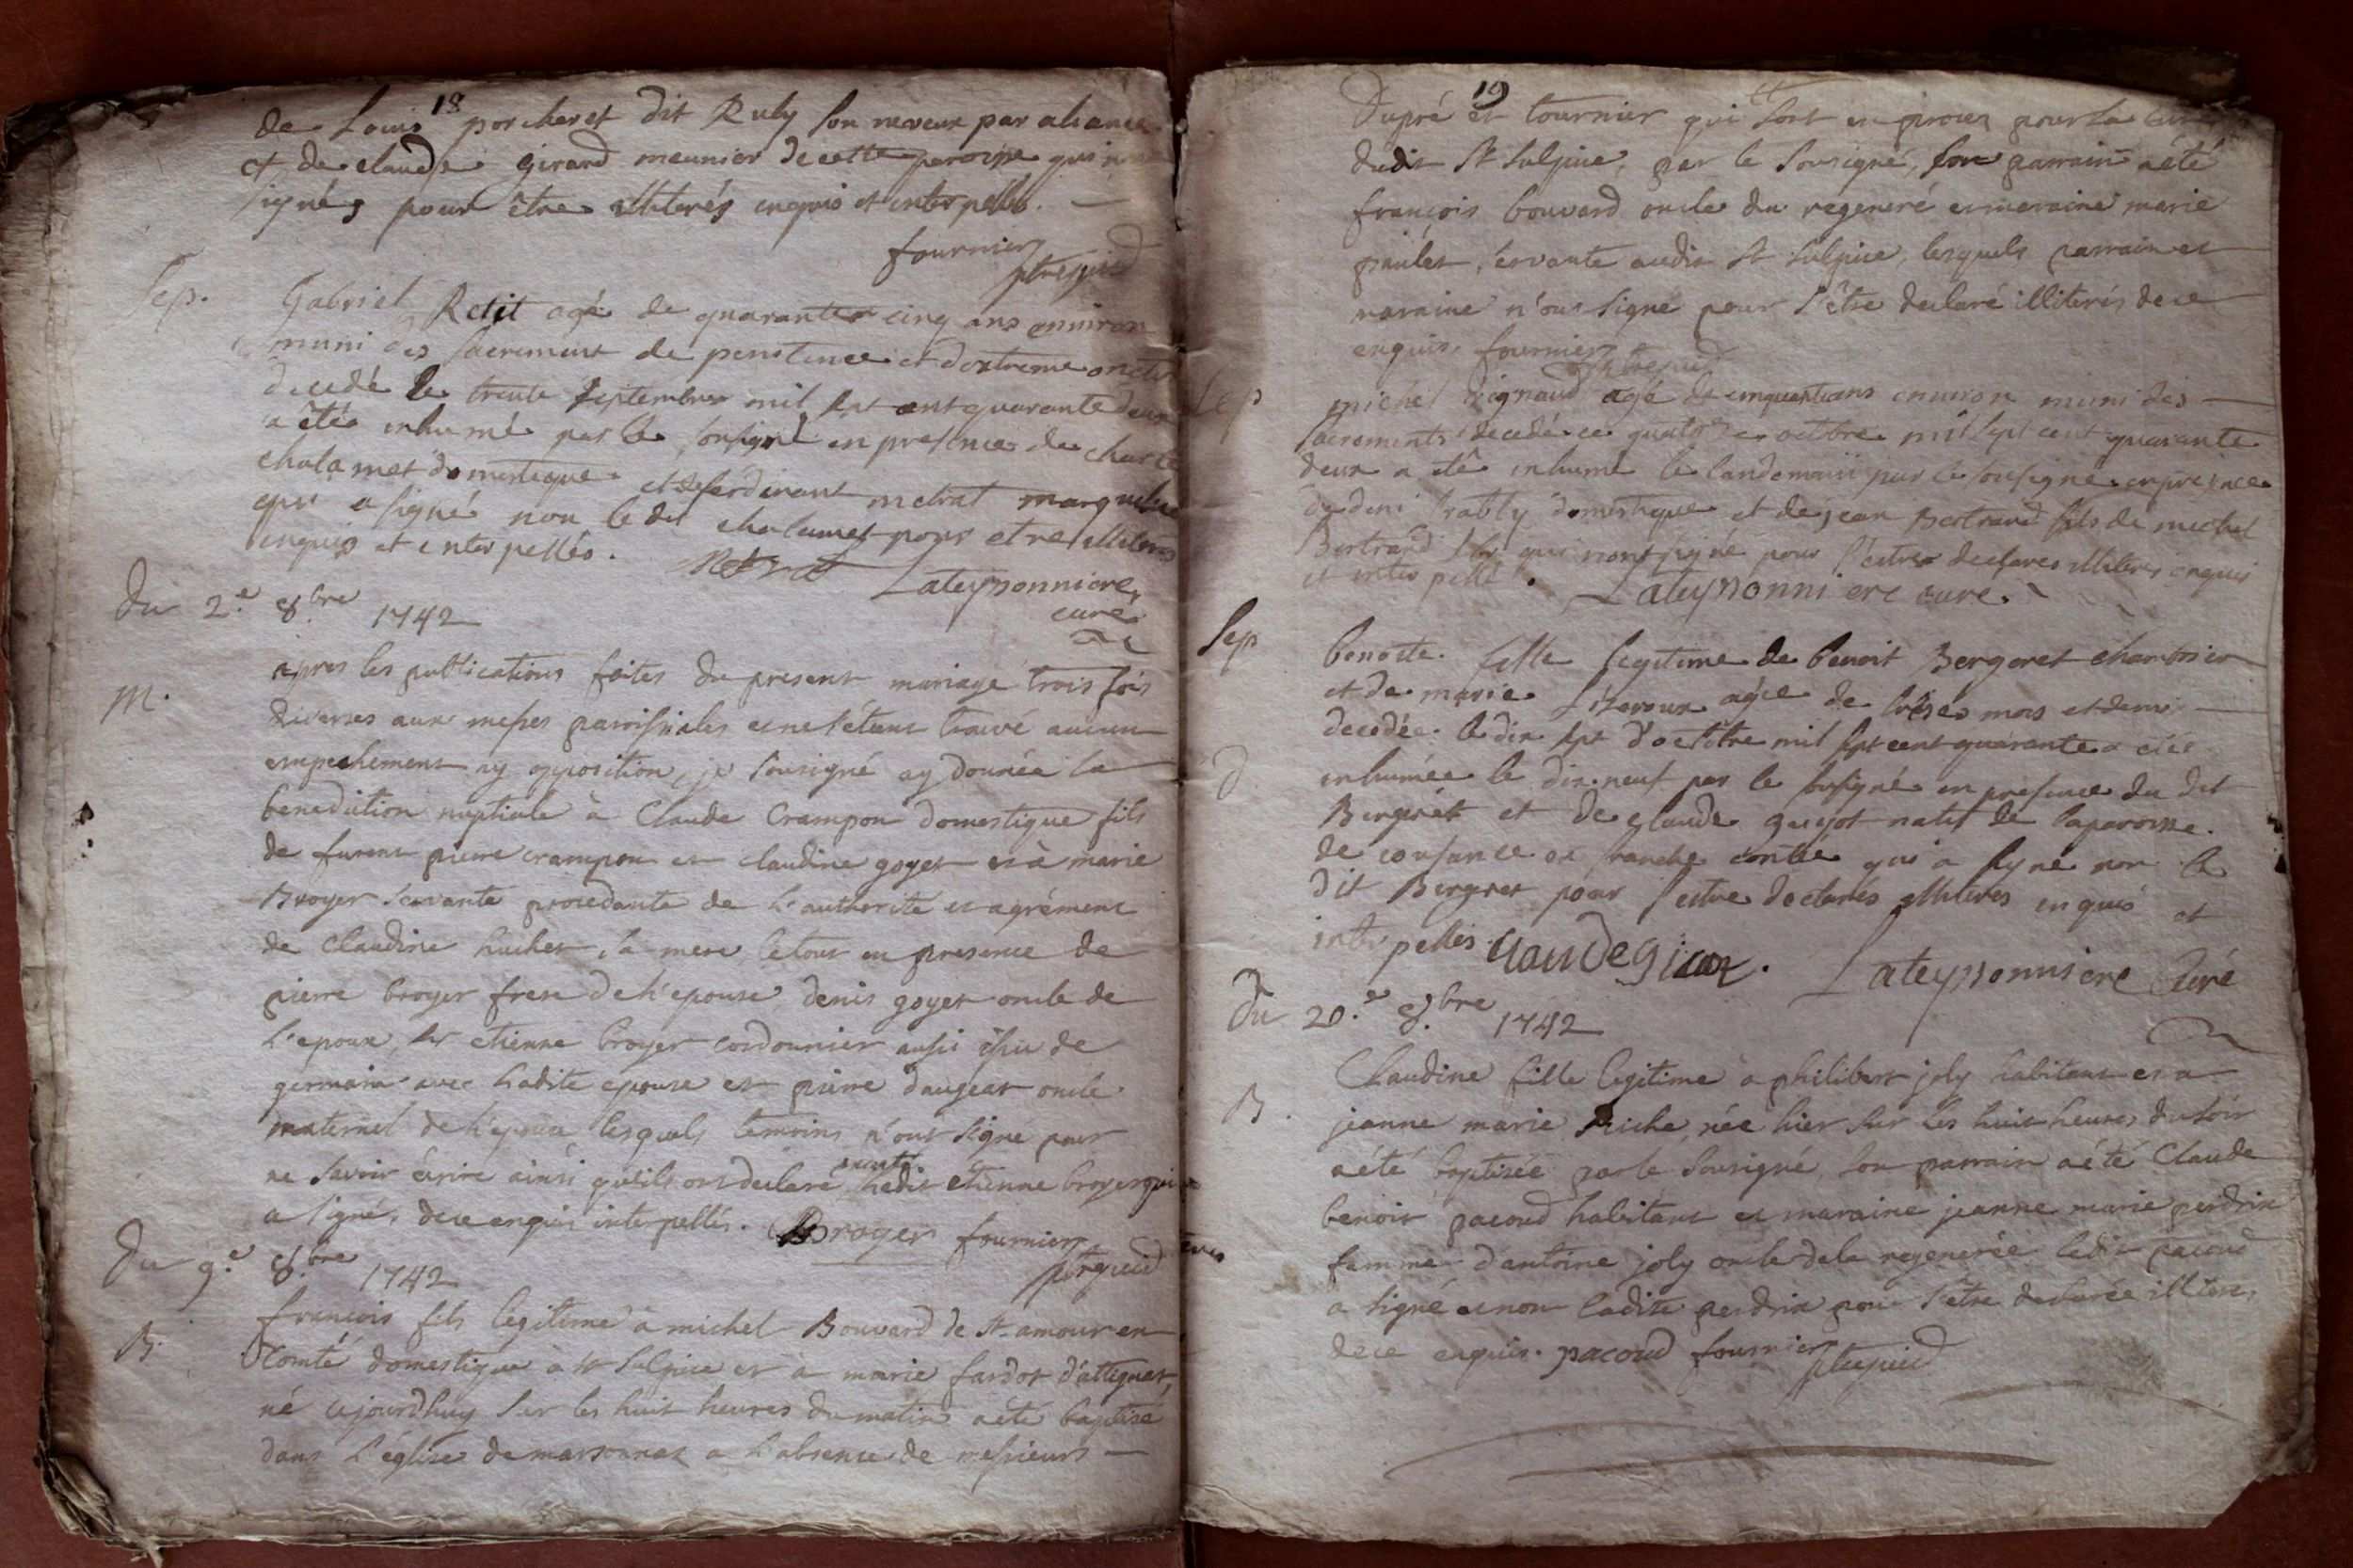 18
de Louis porcheret dit Ruby son neveux par aliance
et de claude girard meunier de cette paroisse qui n'ont
signés pour être illiterés enquis et interpellé.
fournier
Sep. Gabriel Petit agé de quarante cinq ans environ
muni des sacrement de penitence et d'extreme onction
decedé le trente septembre mil sept cent quarante deux
a étée inhumé par le sousigné en presence de charle
chalamet domestique et de ferdinant metrat marguelier
qui a signé non le dit chalamet pour etre illiteres
enquis et interpellés. Metrat Lateyssonniere
curé
Du 2.e 8.bre 1742
M. apres les publications faites du present mariage trois fois
diverses aux messes parroissiales et ne s'étant trouvé aucun
empechement ny opposition, je sousigné ay donnée la
benediction nuptiale à Claude Crampon domestique fils
de furent pierre crampon et claudine goyet et à marie
Broyer servante procedante de l'authorité et agrément
de Claudine huchet, sa mere, le tout en presence de
pierre broyer frere de l'epouse, denis goyet oncle de
l'epoux, sr etienne broyer cordonnier aussi issu de
germain avec ladite epouse et pierre daugeat oncle
maternel de l'epoux lesquels temoins n'ont signé pour
ne savoir écrire ainsi qu'ils ont declaré excepté ledit etienne broyer qui
a signé, de ce enquis interpellés. Broyer fournier
Du 9.e 8.bre 1742
B. francois fils legitime à michel Bouvard de St. amour en
Comté domestique à St Sulpice et à marie fardot d'attignat,
né ajourdhuy sur les huit heures du matin a été baptisé
dans l'église de marsonnas a l'absence de messieurs
19
Dupré et tournier qui sont en proces pour la cure
dudit St Sulpice, par le sousigné, son parrain a été
françois bouvard oncle du regeneré et maraine marie
paulet, servante audit St Sulpice, lesquels parrain et
maraine n'ont signé pour s'être declaré illiterés de ce
enquis, fournier
Sep michel Rignaud agé de cinquant ans environ muni des
sacrements decedé ce quatorze octobre mil sept cent quarante
deux a eté inhumé le landemain par le sousigné en presence
de deni domestique et de jean Bertrand fils de michel
Bertrand qui n'ont signé pour s'estre declares illiteres enquis
et interpellé. Lateyssonniere curé.
Sep benoite fille legitime de benoit Bergeret charbonier
et de marie agée de treses mois et demi
decedée le dix sept d'octobre mil sept cent quarante a été
inhumée le dix-neuf par le sousigné en presence du dit
Bergeret et de glaude guigot natif de la paroisse
de cousance en franche contée qui a signé non le
dit Bergeret pour s'estre declarés illiteres enquis et
interpellés. Lateyssonniere Curé
Du 20.e 8.bre 1742
B. Claudine fille legitime à philibert joly habitant et a
jeanne marie Riche, née hier sur les huit heures du soir
a été baptisée par le sousigné, son parrain a été Claude
benoit pacoud habitant et maraine jeanne marie perdrix
femme d'antoine joly oncle de la regenerée ledit pacoud
a signé et non ladite perdrix pour s'être declarée illiteré,
de ce enquis. pacoud fournier